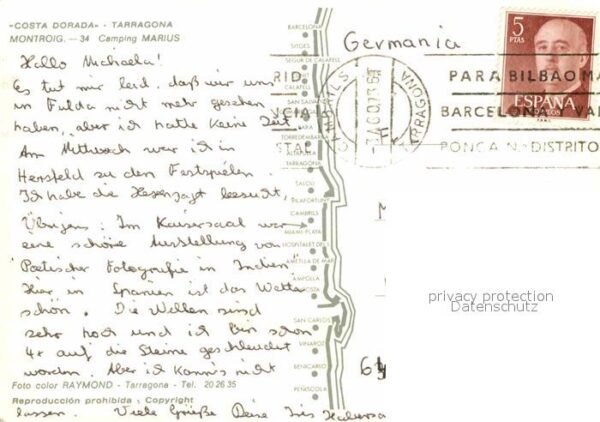 "COSTA DORADA" - TARRAGONA
MONTROIG. - 34 Camping MARIUS
Hallo Michaela!
Es tut mir leid, daß wir uns
in Fulda nicht mehr gesehen
haben, aber ich hatte keine Zeit.
Am Mittwoch war ich in
Hersfeld zu den Festspielen.
Ich habe die Hexenjagt besucht,
Übrigens: Im Kaisersaal war
eine schöne Ausstellung von
Poetischer Fotografie in Indien"
Hier in Spanien ist das Wetter
schön. Die Wellen sind
sehr hoch und ich bin schon
4x auf die Steine geschleudert
worden. Aber ich kann's nicht
Foto color RAYMOND - Tarragona - Tel. 20 26 35
Reproducción prohibida - Copyright
lassen. Viele Grüße Deine Iris
BARCELONA
SITGES
SEGUR DE CALAFELL
CALAFELL
SAN SALVADOR
BARA
TORREDEMBARRA
ALTAFULLA
TARRAGONA
SALOU
VILAFORTUNY
CAMBRILS
MIAMI-PLATA
HOSPITALET DEL
AMETLLA DE MAR
AMPOLLA
SAN CARLOS
VINAROZ
BENICARLO
PEÑISCOLA
Germania
5
PTAS
ESPAÑA
CORREOS
TARRAGONA
PARA BILBAO MA
BARCELONA VA
PONGA N.º DISTRITO
privacy protection
Datenschutz